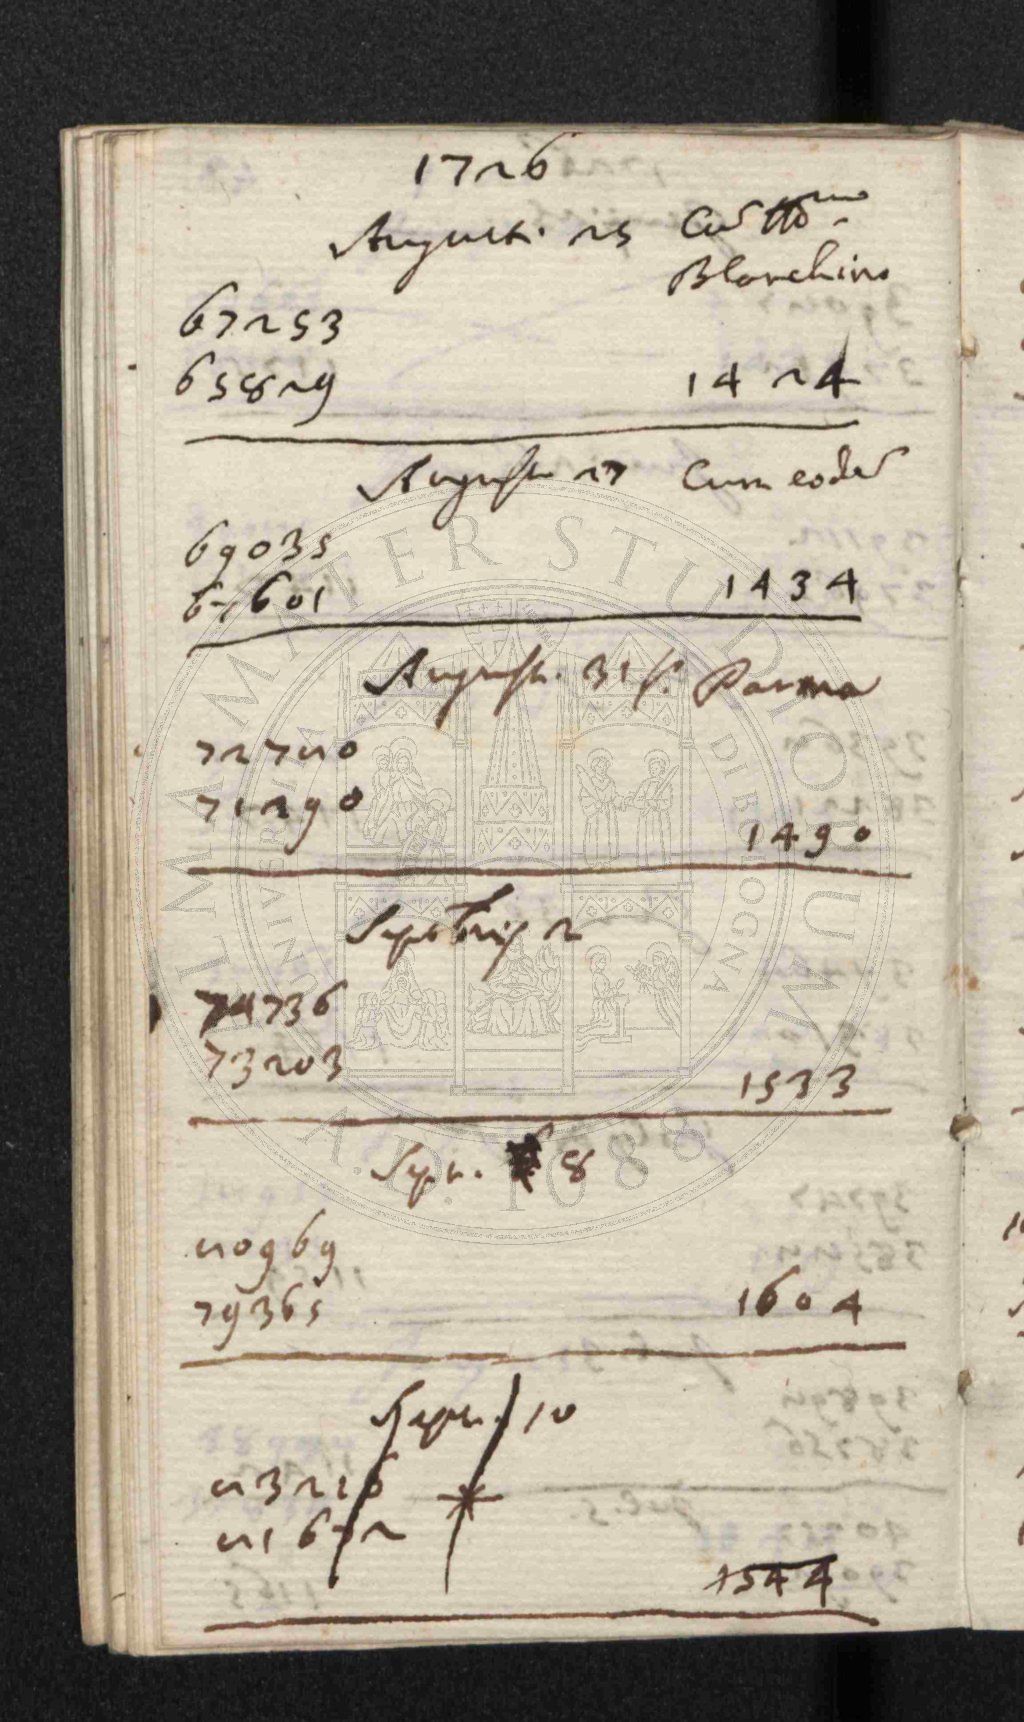 1726
August. 25 Cũ Illmo
Blanchino
67253
65829 1424
August. 27 Cum eodẽ
69035
67601 1434
August. 31 S. Parma
72780
71290
1490
Septbris 2
74736
73203
1533
Sept. 8
80969
79365 1604
Sept. 10
83216
81672
1544
ALMA MATER STUDIORUM
UNIVERSITÀ DI BOLOGNA
A.D. 1088